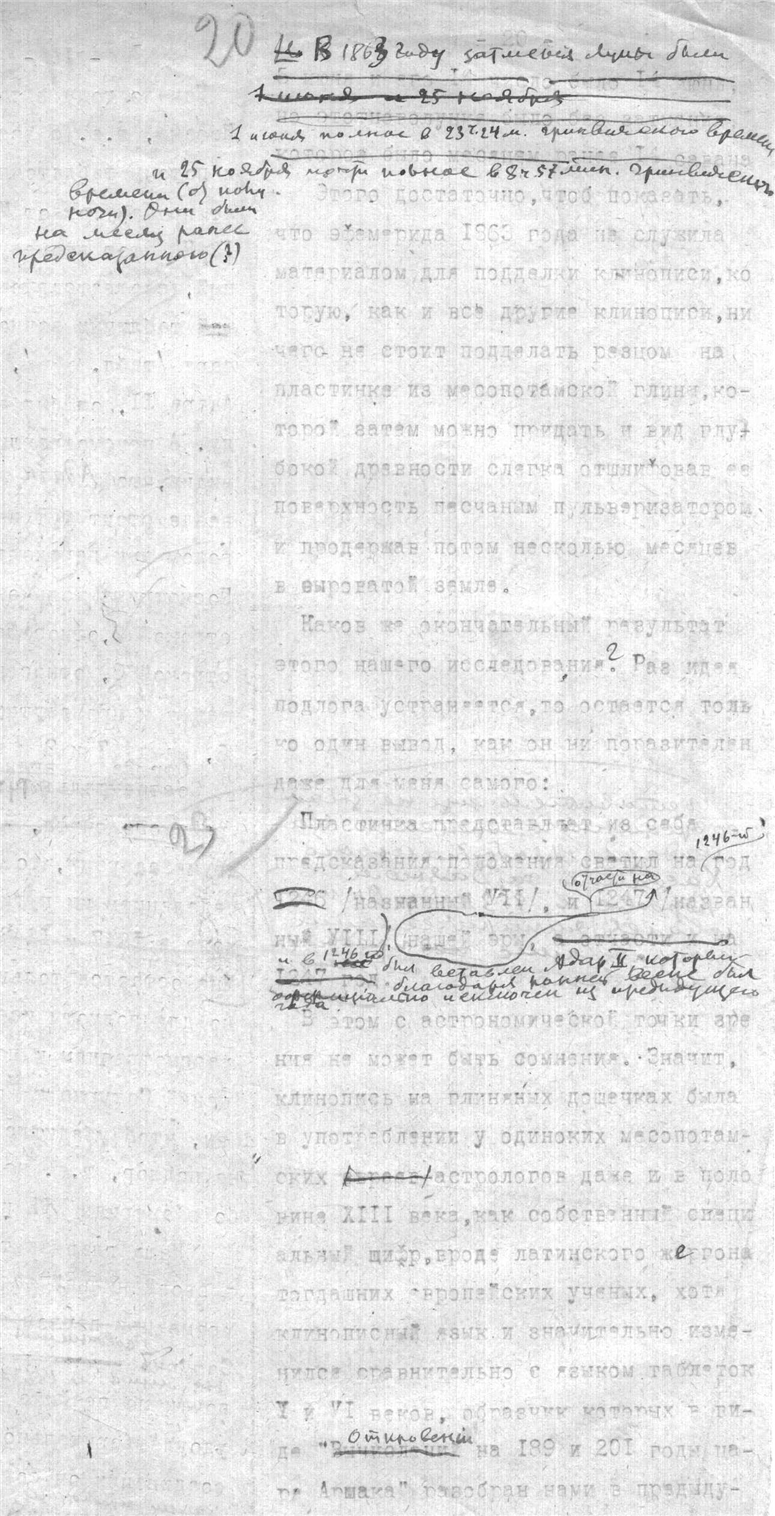 20
В 1863 году затмения Луны были
1 июня и 25 ноября
1 июня полное в 23ч.24м. гринвичского времени
и 25 ноября почти полное в 8ч 57 мин. гринвичск.
времени (от полу-
ночи). Они были
на месяц ранее
предсказанного (?)
Этого достаточно,чтоб показать,
что эфемерида 1863 года не служила
материалом для подделки клинописи,ко
торую, как и все другие клинописи,ни
чего не стоит подделать резцом на
пластинке из месопотамской глины,ко-
торой затем можно придать и вид глу-
бокой древности слегка отшлифовав ее
поверхность песчаным пульверизатором
и продержав потом несколько месяцев
в сыроватой земле.
Каков же окончательный результат
этого нашего исследования? Раз идея
подлога устраняется,то остается толь
ко один вывод, как он ни поразителен
даже для меня самого:
Пластинка представляет из себя
1246-й
предсказания положения светил на год
отчасти на
1246 /названный VII/, и 1247 /назван
ный VIII/ нашей эры, а отчасти и на
и в 1246 был вставлен Адар II который
1247 год. благодаря ранней весне был
официально исключен из предидущего
года
В этом с астрономической точки зре
ния не может быть сомнения. Значит,
клинопись на глиняных дощечках была
в употреблении у одиноких месопотам-
ских астрологов даже и в поло
вине XIII века,как собственный специ
альный шифр,вроде латинского жергона
тогдашних европейских ученых, хотя
клинописный язык и значительно изме-
нился сравнительно с языком таблеток
V и VI веков, образчик которых в ви-
Откровений
де "Вычислений на 189 и 201 годы ца-
ря Аршака" разобран нами в предыду-